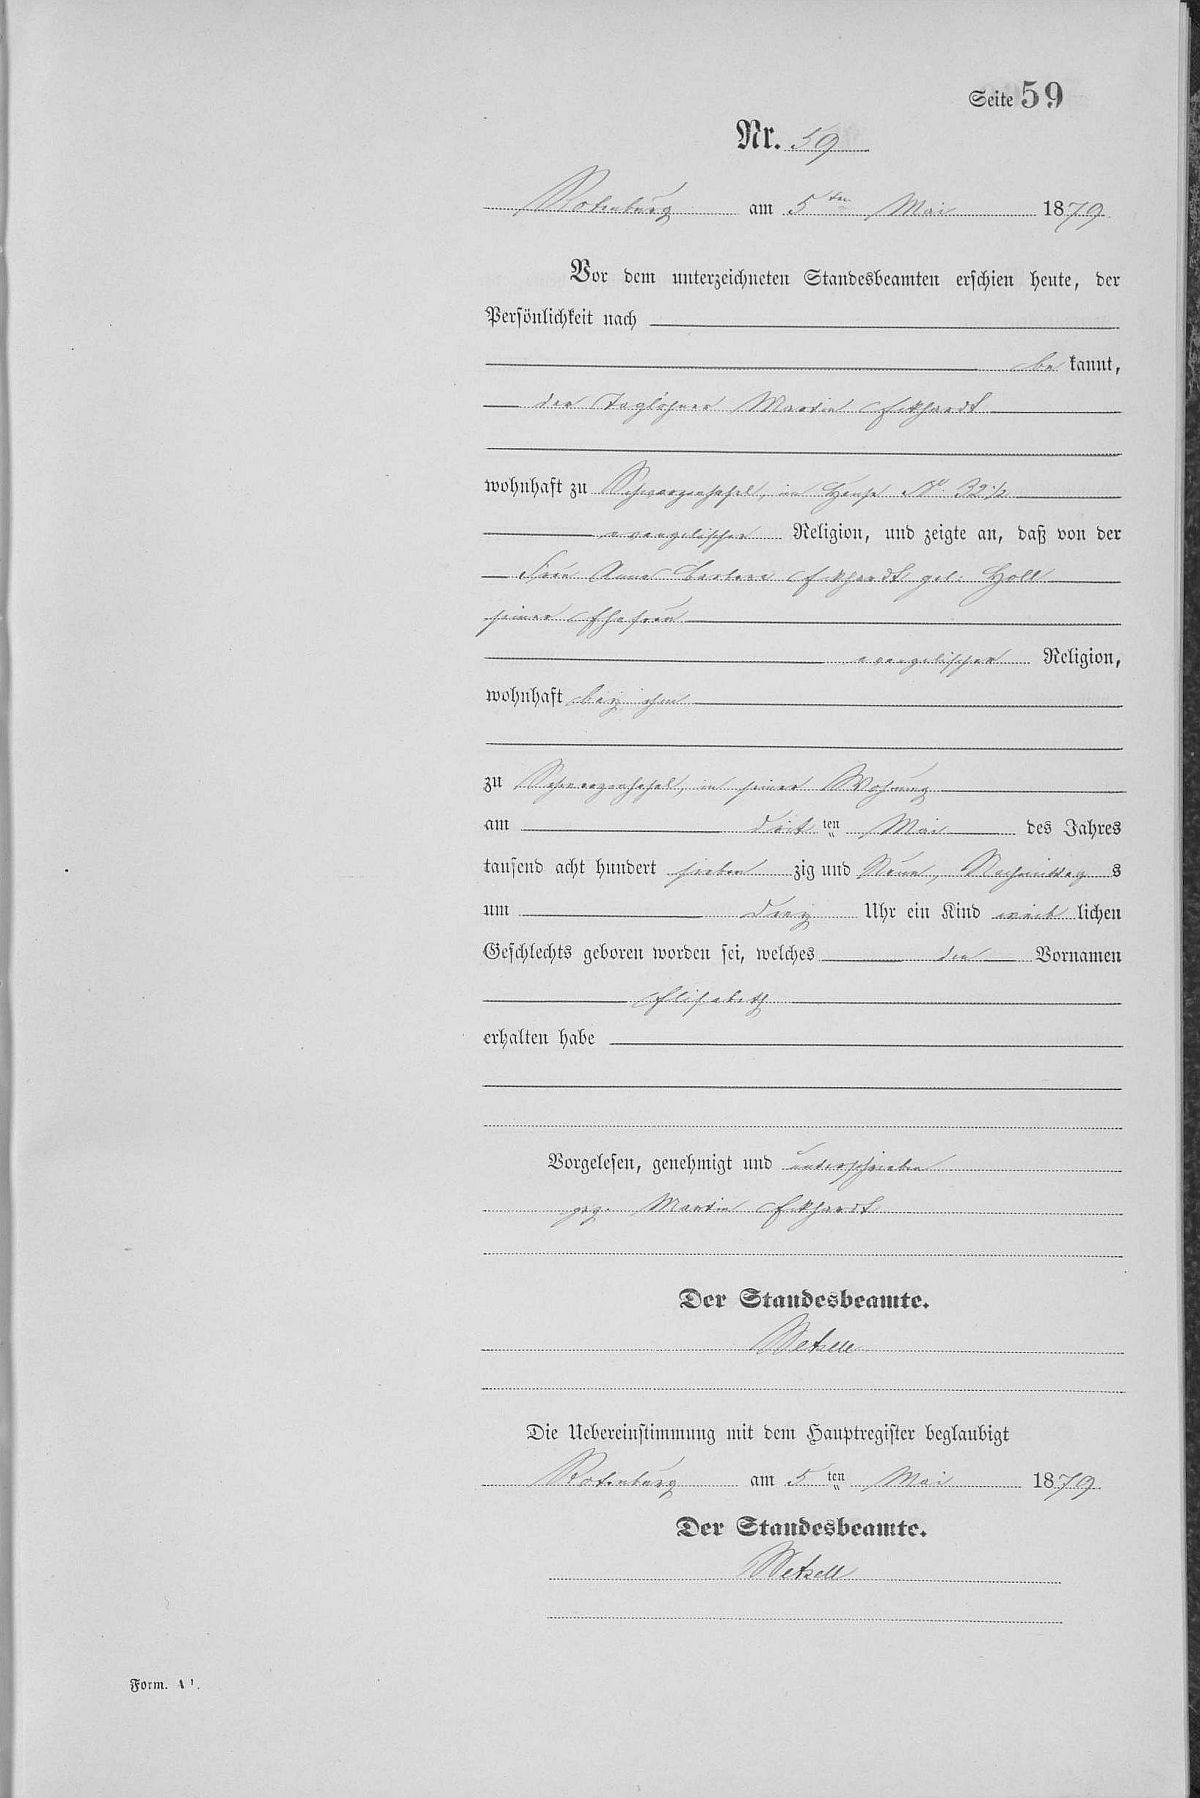 Seite 59
Nr. 59
Rotenburg am 5ten Mai 1879
Vor dem unterzeichneten Standesbeamten erschien heute, der
Persönlichkeit nach
be kannt,
der Taglöhner Martin Eckhardt
wohnhaft zu Schwarzenhasel, im Hause No 32 1/2
evangelischer Religion, und zeigte an, daß von der
Frau Anna Barbara Eckhardt geb. Holl
seiner Ehefrau
evangelischer Religion,
wohnhaft bey ihm
zu Schwarzenhasel, in seiner Wohnung
am dritten Mai des Jahres
tausend acht hundert siebenzig und Neun, Nachmittags
um drey Uhr ein Kind weiblichen
Geschlechts geboren worden sei, welches den Vornamen
Elisabeth
erhalten habe
Vorgelesen, genehmigt und unterschrieben
gez. Martin Eckhardt
Der Standesbeamte.
Wetzell
Die Uebereinstimmung mit dem Hauptregister beglaubigt
Rotenburg am 5ten Mai 1879
Der Standesbeamte.
Wetzell
Form. A1.